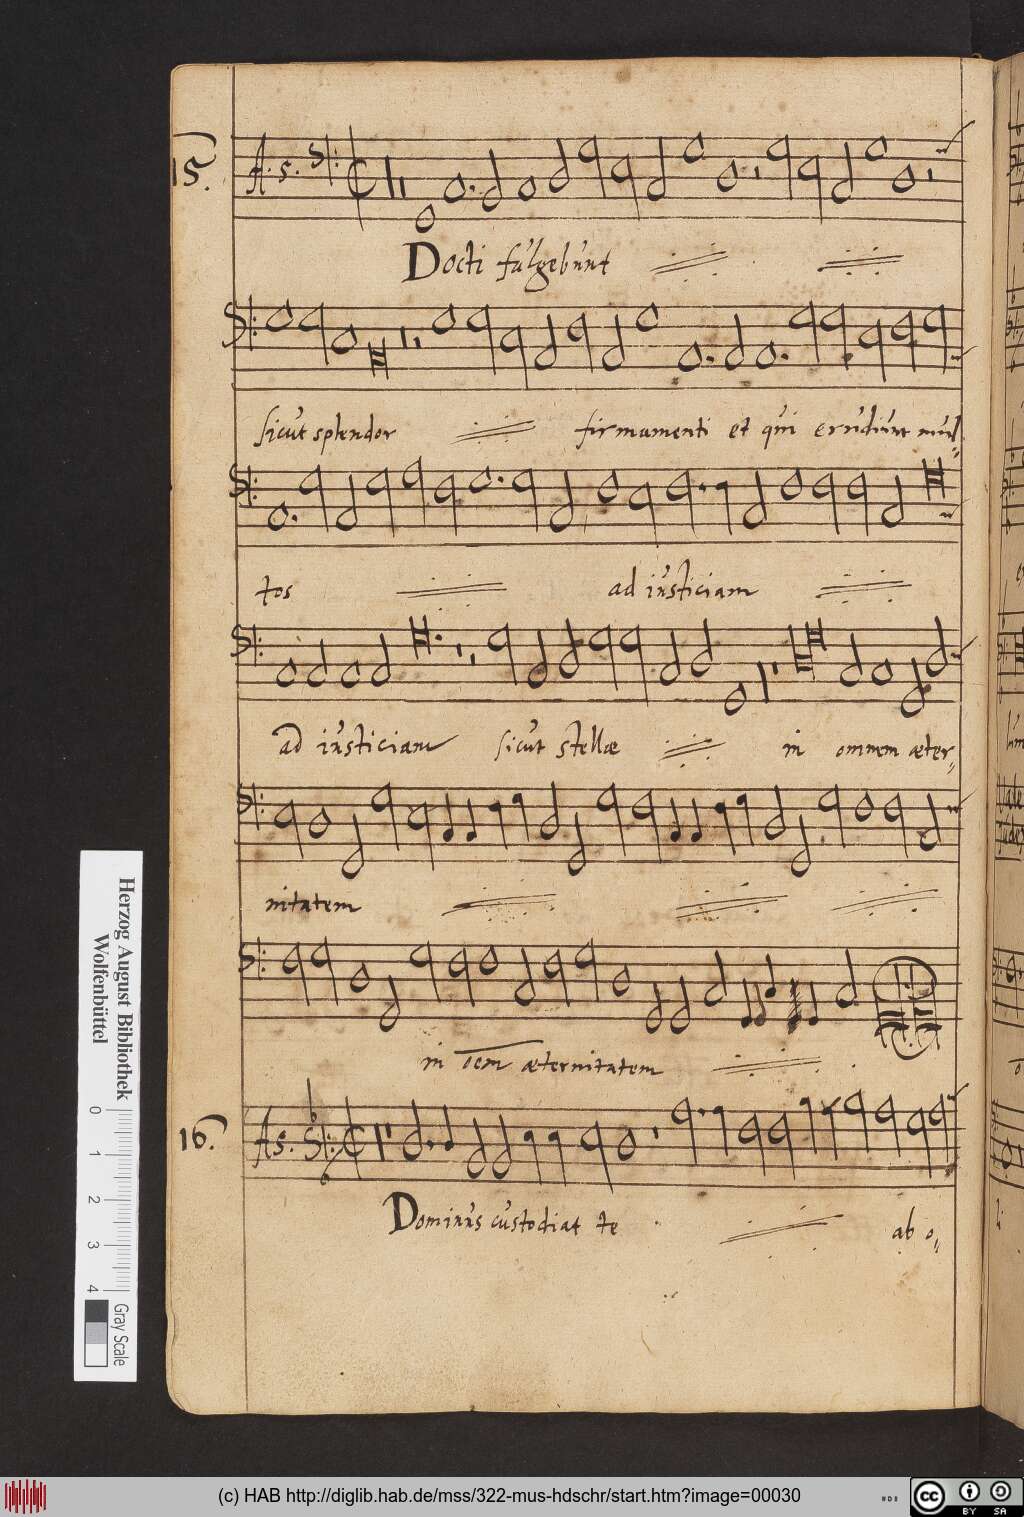 15.
A. 5.
Docti fulgebunt
sicut splendor firmamenti et qui erudiunt mul=
tos ad iusticiam
ad iusticiam sicut stellæ in omnem æter=
nitatem
in oem æternitatem
16.
A 5.
Dominus custodiat te ab o=
Herzog August Bibliothek
Wolfenbüttel
0 1 2 3 4
Gray Scale
(c) HAB http://diglib.hab.de/mss/322-mus-hdschr/start.htm?image=00030
cc BY SA